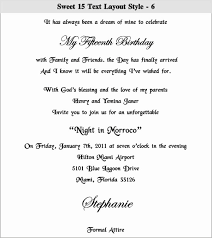 Sweet 15 Text Layout Style - 6
It has always been a dream of mine to celebrate
My Fifteenth Birthday
with Family and Friends, the Day has finally arrived
And I know it will be everything I've wished for.
With God's blessing and the love of my parents
Henry and Yemina Janer
Invite you to join us for an unforgettable
"Night in Morroco"
On Friday, January 7th, 2011 at 7 o'clock in the evening
Hilton Miami Airport
5101 Blue Lagoon Drive
Miami, Florida 55155
Stephanie
Formal Attire